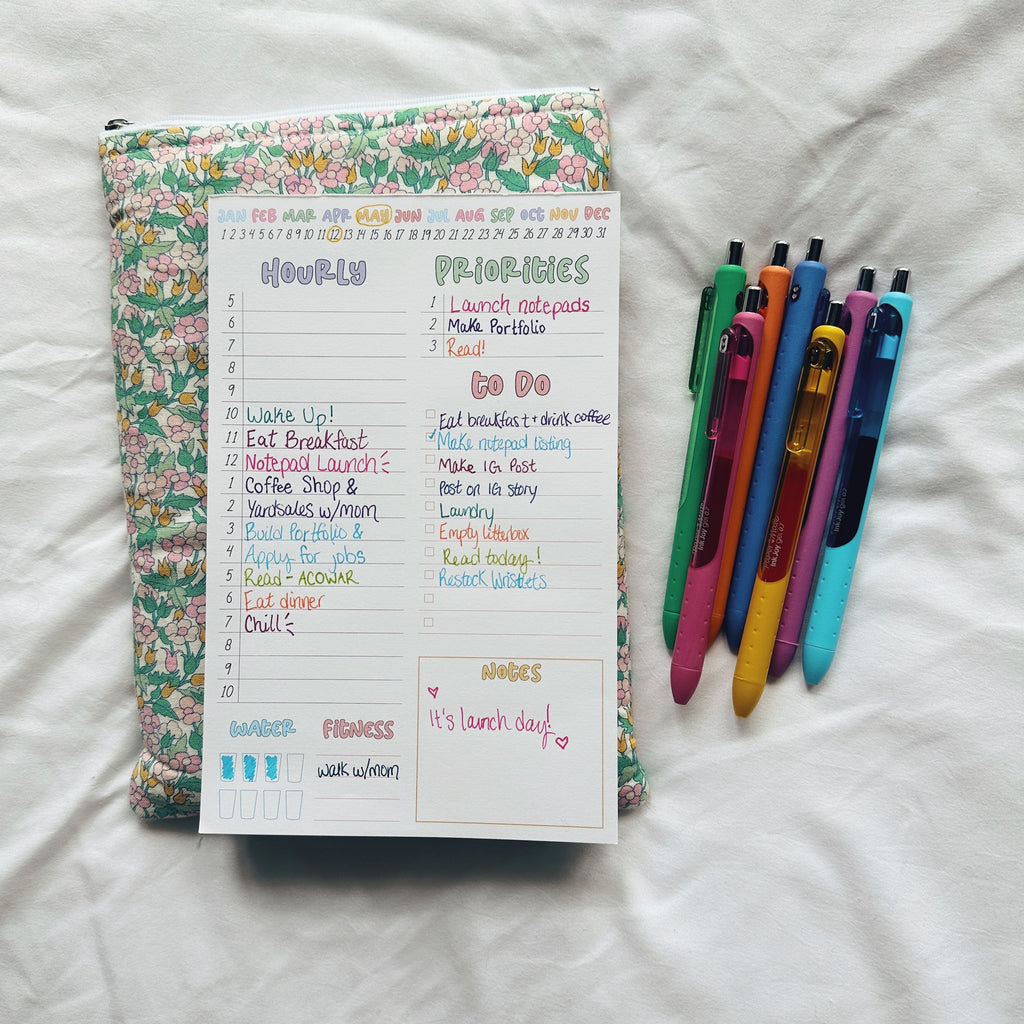 JAN FEB MAR APR MAY JUN JUL AUG SEP OCT NOV DEC
1 2 3 4 5 6 7 8 9 10 11 12 13 14 15 16 17 18 19 20 21 22 23 24 25 26 27 28 29 30 31
HOURLY
5
6
7
8
9
10 Wake Up!
11 Eat Breakfast
12 Notepad Launch
1 Coffee Shop &
2 Yardsales w/mom
3 Build Portfolio &
4 Apply for jobs
5 Read - ACOWAR
6 Eat dinner
7 Chill
8
9
10
WATER
FITNESS
walk w/mom
PRIORITIES
1 Launch notepads
2 Make Portfolio
3 Read!
to Do
Eat breakfast + drink coffee
Make notepad listing
Make IG Post
Post on IG story
Laundry
Empty litterbox
Read today!
Restock Wristlets
NOTES
It's launch day!
InkJoy gel 0.7
InkJoy gel 0.7
InkJoy gel 0.7